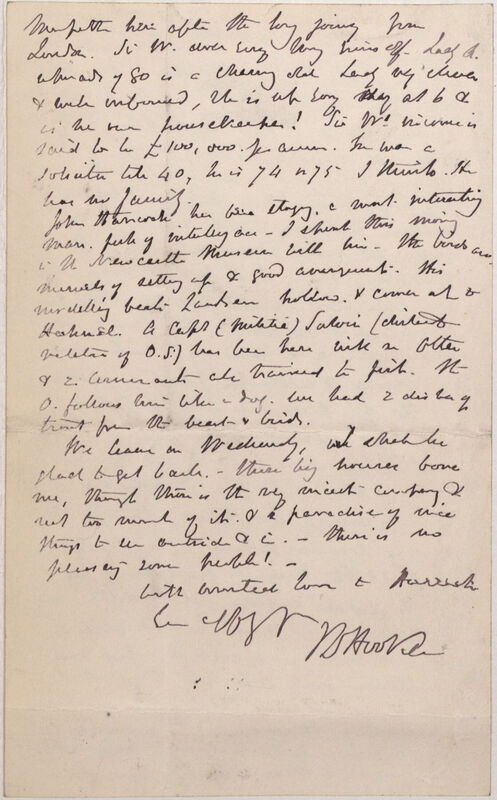 here after the long journey from
London. Sir W. drove every long Lady A.
upwards of 80 is a charming old Lady very clever
& well informed, she is up every day at 6 &
is her own housekeeper! Sir Ws income is
said to be £100,000 per annum. he was a
solicitor till 40, he is 74 or 75 I think. He
has no family.
John Hancock has been staying, a most interesting
man. full of intelligence - I spent this morning
in the Newcastle Museum with him - the birds are
marvels of setting up & good arrangement. His
modelling beats Landseer hollow. & comes up to
A Capt (Militia) Salvin (distant
relation of O.S.) has been here with an Otter
& 2 cormorants all trained to fish. The
O. follows him like a dog. we had 2 dishes of
trout from the beast & birds.
We leave on Wednesday, & I shall be
glad to get back. - these big houses bore
me, though this is the very nicest company, &
not too much of it. & a paradise of nice
things to see outside & in. - there is no
pleasing some people! -
with united love to Harriet
Ever aff
J D Hooker